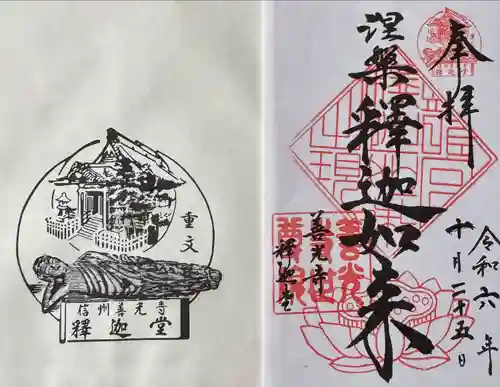 奉拝
涅槃釋迦如来
善光寺
釋迦堂
令和六年
十月二十五日
重文
信州善光寺
釋迦堂